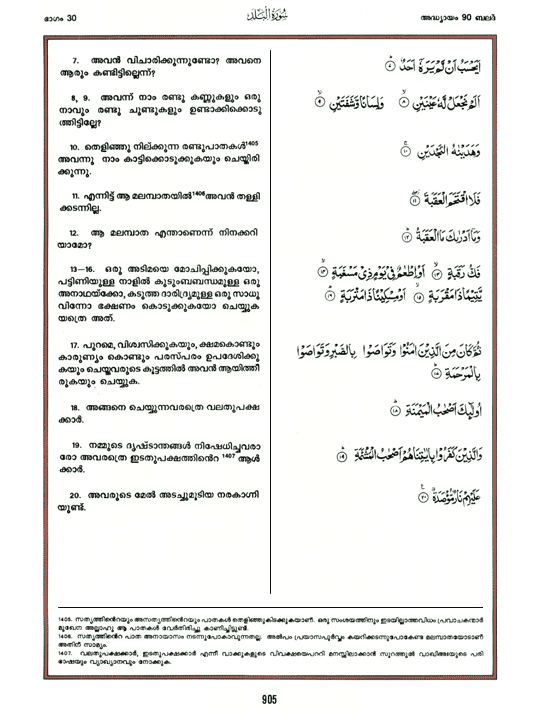 ഭാഗം 30
سُورَةُ البَلَد
അദ്ധ്യായം 90 ബലദ്
7. അവൻ വിചാരിക്കുന്നുണ്ടോ? അവനെ
ആരും കണ്ടിട്ടില്ലെന്ന്?
8, 9. അവന്ന് നാം രണ്ടു കണ്ണുകളും ഒരു
നാവും രണ്ടു ചുണ്ടുകളും ഉണ്ടാക്കിക്കൊടു
ത്തിട്ടില്ലേ?
10. തെളിഞ്ഞു നില്ക്കുന്ന രണ്ടുപാതകൾ1405
അവന്നു നാം കാട്ടിക്കൊടുക്കുകയും ചെയ്തിരി
ക്കുന്നു.
11. എന്നിട്ട് ആ മലമ്പാതയിൽ1406 അവൻ തള്ളി
ക്കടന്നില്ല.
12. ആ മലമ്പാത എന്താണെന്ന് നിനക്കറി
യാമോ?
13—16. ഒരു അടിമയെ മോചിപ്പിക്കുകയോ,
പട്ടിണിയുള്ള നാളിൽ കുടുംബബന്ധമുള്ള ഒരു
അനാഥയ്ക്കോ, കടുത്ത ദാരിദ്ര്യമുള്ള ഒരു സാധു
വിന്നോ ഭക്ഷണം കൊടുക്കുകയോ ചെയ്യുക
യത്രെ അത്.
17. പുറമെ, വിശ്വസിക്കുകയും, ക്ഷമകൊണ്ടും
കാരുണ്യം കൊണ്ടും പരസ്പരം ഉപദേശിക്കു
കയും ചെയ്തവരുടെ കൂട്ടത്തിൽ അവൻ ആയിത്തീ
രുകയും ചെയ്യുക.
18. അങ്ങനെ ചെയ്യുന്നവരത്രെ വലതുപക്ഷ
ക്കാർ.
19. നമ്മുടെ ദൃഷ്ടാന്തങ്ങൾ നിഷേധിച്ചവരാ
രോ അവരത്രെ ഇടതുപക്ഷത്തിൻെറ 1407 ആൾ
ക്കാർ.
20. അവരുടെ മേൽ അടച്ചുമൂടിയ നരകാഗ്നി
യുണ്ട്.
اَيَحْسَبُ اَنْ لَّمْ يَرَهٗٓ اَحَدٌ ۝٧
اَلَمْ نَجْعَلْ لَّهٗ عَيْنَيْنِ ۝٨ وَلِسَانًا وَّشَفَتَيْنِ ۝٩
وَهَدَيْنٰهُ النَّجْدَيْنِ ۝١٠
فَلَا اقْتَحَمَ الْعَقَبَةَ ۝١١
وَمَآ اَدْرٰىكَ مَا الْعَقَبَةُ ۝١٢
فَكُّ رَقَبَةٍ ۝١٣ اَوْ اِطْعٰمٌ فِيْ يَوْمٍ ذِيْ مَسْغَبَةٍ ۝١٤
يَّتِيْمًا ذَا مَقْرَبَةٍ ۝١٥ اَوْ مِسْكِيْنًا ذَا مَتْرَبَةٍ ۝١٦
ثُمَّ كَانَ مِنَ الَّذِيْنَ اٰمَنُوْا وَتَوَاصَوْا بِالصَّبْرِ وَتَوَاصَوْا
بِالْمَرْحَمَةِ ۝١٧
اُولٰٓئِكَ اَصْحٰبُ الْمَيْمَنَةِ ۝١٨
وَالَّذِيْنَ كَفَرُوْا بِاٰيٰتِنَا هُمْ اَصْحٰبُ الْمَشْـَٔمَةِ ۝١٩
عَلَيْهِمْ نَارٌ مُّؤْصَدَةٌ ۝٢٠
1405. സത്യത്തിൻെറയും അസത്യത്തിൻെറയും പാതകൾ തെളിഞ്ഞുകിടക്കുകയാണ്. ഒരു സംശയത്തിനും ഇടയില്ലാത്തവിധം പ്രവാചകന്മാർ
മുഖേന അല്ലാഹു ആ പാതകൾ വേർതിരിച്ചു കാണിച്ചിട്ടുണ്ട്.
1406. സത്യത്തിൻെറ പാത അനായാസം നടന്നുപോകാവുന്നതല്ല. അല്പം പ്രയാസപൂർവ്വം കയറിക്കടന്നുപോകേണ്ട മലമ്പാതയോടാണ്
അതിന് സാമ്യം.
1407. വലതുപക്ഷക്കാർ, ഇടതുപക്ഷക്കാർ എന്നീ വാക്കുകളുടെ വിവക്ഷയെപററി മനസ്സിലാക്കാൻ സൂറത്തുൽ വാഖിഅയുടെ പരി
ഭാഷയും വ്യാഖ്യാനവും നോക്കുക.
905